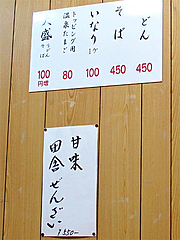 どん 450
そば 450
いなり1ケ 100
トッピング用温泉たまご 80
大盛 うどん そば 100円増
甘味
田舎ぜんざい
¥550-